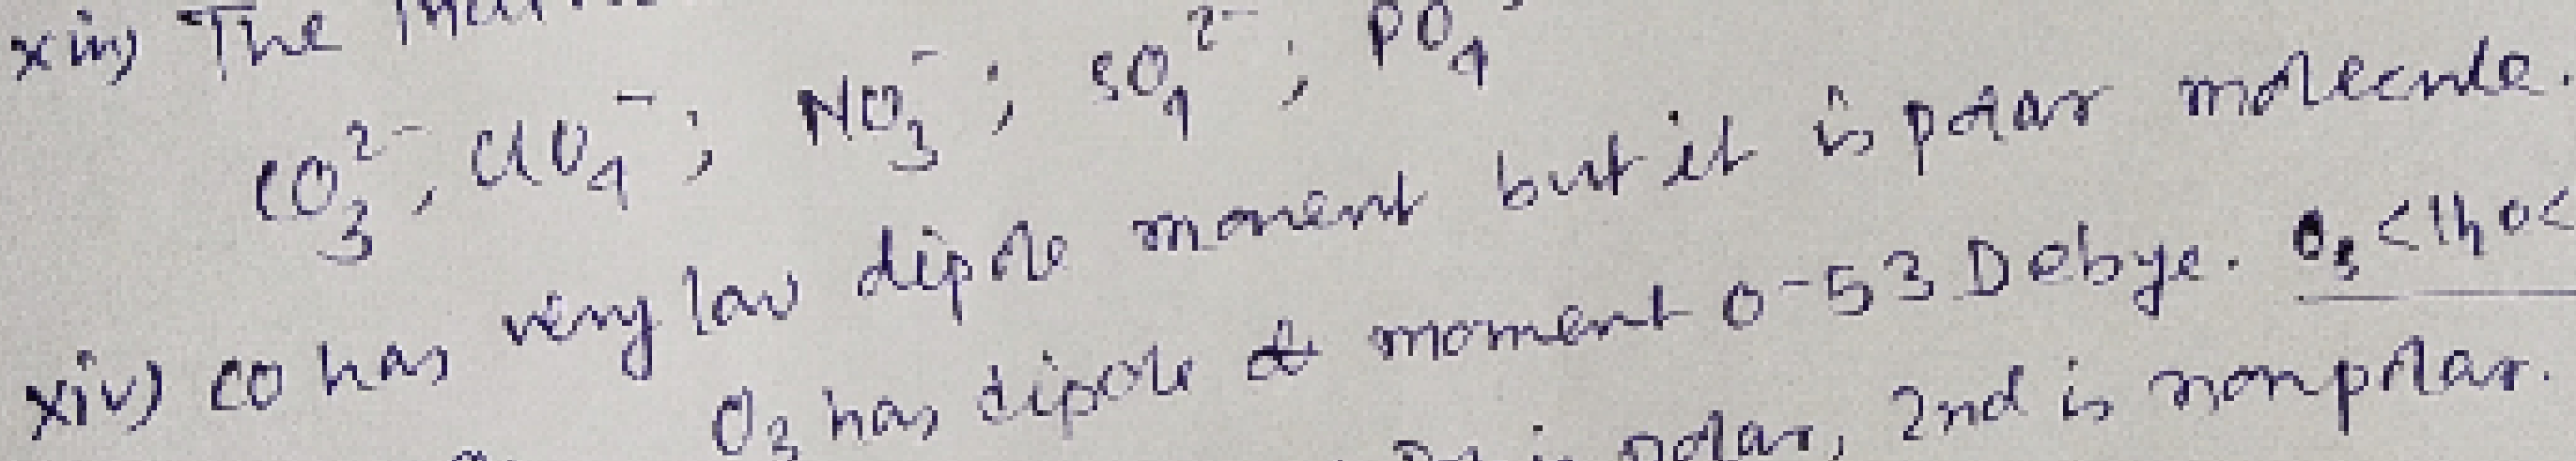 xiii) The
CO₃²⁻, ClO₄⁻; NO₃⁻; SO₄²⁻; PO₄
xiv) CO has very low dipole moment but it is polar molecule.
O₃ has dipole moment 0.53 Debye. O₃ <
is polar, 2nd is nonpolar.